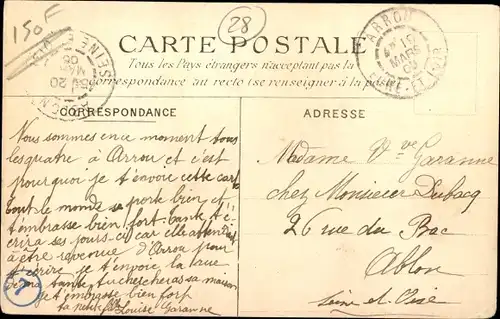 150F
28
CARTE POSTALE
Tous les Pays étrangers n'acceptant pas la
correspondance au recto (se renseigner à la poste)
ARROU
15
MARS
EURE-ET-LOIR
SEINE
20
MARS
CORRESPONDANCE
Nous sommes en ce moment tous
les quatre à Arrou et c'est
pourquoi je t'envoie cette cart
tout le monde se porte bien et
t'embrasse bien fort tante t'é
crira ses jours-ci car elle attend
à être revenue d'Arrou pour
t'écrire je t'envoie la rue
de ma tante tu chercheras sa maison
je t'embrasse bien fort
ta petite Louise Garanne
7
ADRESSE
Madame Vve Garanne
chez Monsieur Dubacq
26 rue du Bac
Ablon
Seine et Oise